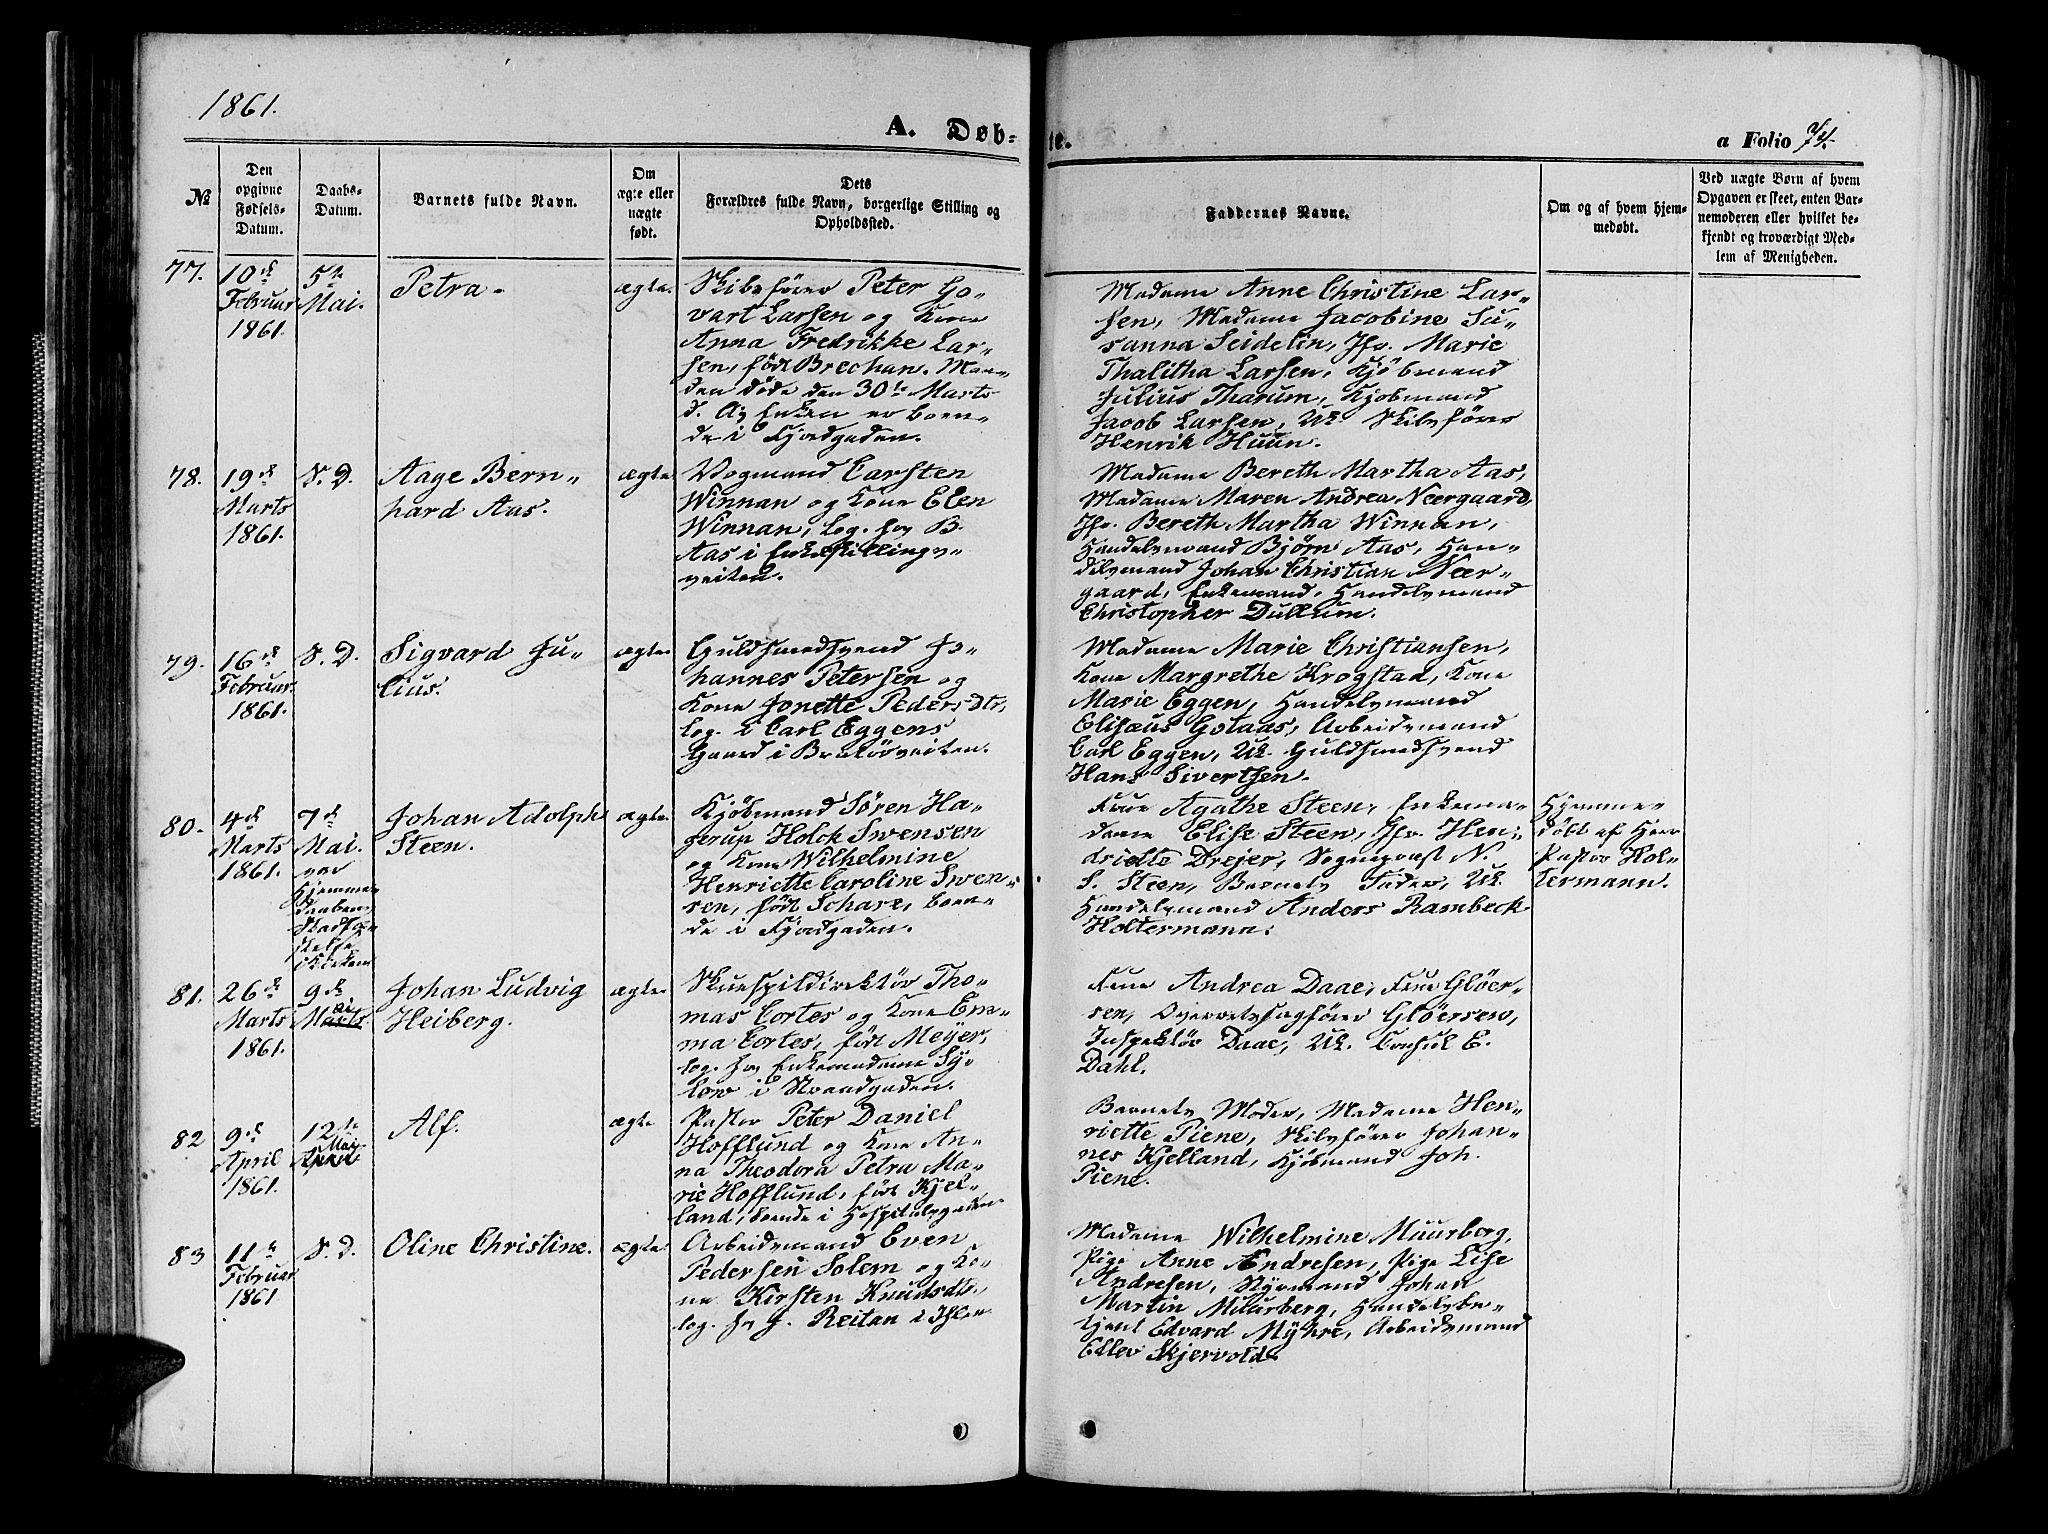 1861.
A. Døb-
te.
a Folio 74.
№
Den
opgivne
Fødsels-
Datum.
Daabs-
Datum.
Barnets fulde Navn.
Om
ægte eller
uægte
født.
Dets
Forældres fulde Navn, borgerlige Stilling og
Opholdssted.
Faddernes Navne.
Om og af hvem hjem-
medøbt.
Ved uægte Børn af hvem
Opgaven er skeet, enten Bar-
nemoderen eller hvilket be-
kjendt og troværdigt Med-
lem af Menigheden.
77.
10de
Februar
1861.
5te
Mai.
Petra.
ægte.
Skibsfører Peter Go-
vart Larsen og Kone
Anna Fredrikke Lar-
sen, født Brechan. Man-
den døde den 30te Marts
d. A, Enken er boen-
de i Fjordgaden.
Madame Anne Christine Lar-
sen, Madame Jacobine Su-
sanna Seidelin, Jfr. Marie
Thalitha Larsen, Kjöbmand
Julius Tharum, Kjøbmand
Jacob Larsen, Uk. Skibsfører
Henrik Huun.
78.
19de
Marts
1861.
S. D.
Aage Bern-
hard Aas.
ægte
Vogmand Carsten
Winnan og Kone Elen
Winnan, log. hos B.
Aas i Enkeskillings-
veiten.
Madame Bereth Martha Aas,
Madame Maren Andrea Neergaard,
Jfr. Bereth Martha Winnan,
Handelsmand Bjørn Aas, Han-
delsmand Johan Christian Neer-
gaard, Enkemand, Handelsmand
Christopher Dullum.
79.
16de
Februar
1861.
S. D.
Sigvard Ju-
lius.
ægte
Guldsmedsvend Jo-
hannes Petersen og
Kone Jonette Pedersdtr,
log. i Carl Eggens
Gaard i Brattørveiten.
Madame Marie Christiansen,
Kone Margrethe Krogstad, Kone
Marie Eggen, Handelsmand
Elisæus Golaas, Arbeidsmand
Carl Eggen, Uk. Guldsmedsvend
Hans Sivertsen.
80.
4de
Marts
1861.
7de
Mai.
var
Hjemme
daabens
Stadfæ
stelse
i Kirken
Johan Adolph
Steen.
ægte.
Kjøbmand Søren Ha-
gerup Holck Swensen
og Kone Wilhelmine
Henriette Caroline Swen-
sen, født Scharz, boen-
de i Fjordgaden.
Frue Agathe Steen, Enkema-
dame Elise Steen, Jfr. Hen-
driette Drejer, Sogneprest N.
S. Steen, Barnets Fader, Uk.
Handelsmand Anders Rambeck
Holtermann.
Hjemme-
døbt af Herr
Pastor Hol-
termann.
81.
26de
Marts
1861.
9de
Mai
Johan Ludvig
Heiberg.
ægte
Skuespildirektör Tho-
mas Cortes og Kone Em-
ma Cortes, født Meyer,
log. hos Enkemadame Sy-
low i Strandgaden.
Frue Andrea Daae, Frue Gløer-
sen, Overretssagfører Gløersen,
Inspektör Daae, Uk. Consul E.
Dahl.
82
9de
April
1861.
12te
Mai
April
Alf.
ægte
Pastor Peter Daniel
Hofflund og Kone An-
na Theodora Petra Ma-
rie Hofflund, født Kjel-
land, boende i Hospitalsgaden
Barnets Moder, Madame Hen-
riette Piene, Skibsfører Johan-
nes Kjelland, Kjöbmand Joh.
Piene.
83
11te
Februar
1861
S. d.
Oline Christine.
ægte.
Arbeidsmand Even
Pedersen Solem og Ko-
ne Kirsten Knudsdtr.,
log. hos J. Reitan i Ihlen
Madame Wilhelmine Muurberg,
Pige Anne Andresen, Pige Lise
Andresen, Styrmand Johan
Martin Muurberg, Handelsbe-
tjent Edvard Myhre, Arbeidsmand
Ellev Skjervold.